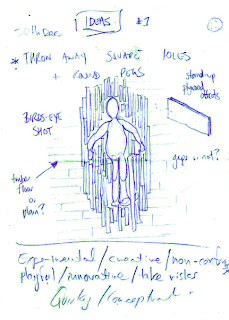 30th Dec IDEAS #1
* THROW AWAY SQUARE HOLES
+ ROUND PEGS
stand-up
plywood
BIRDS-EYE
SHOT
gaps or not?
timber
floor
or
plain?
Experimental / creative / non-conform
playful / innovative / take risks
Quirky / conceptual.